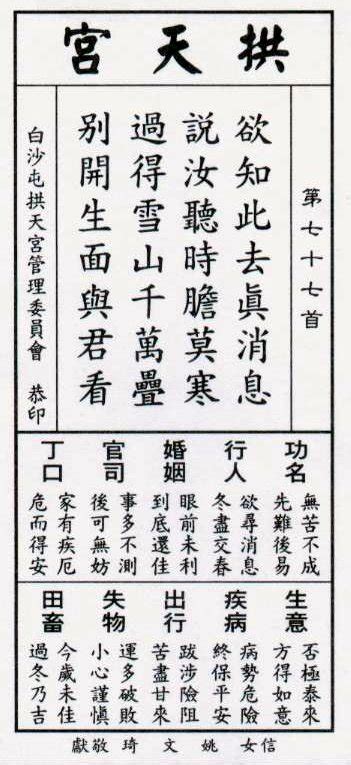 拱天宮
第七十七首
欲知此去眞消息
說汝聽時膽莫寒
過得雪山千萬疊
别開生面與君看
白沙屯拱天宮管理委員會　恭印
功名
無苦不成
先難後易
行人
欲尋消息
冬盡交春
婚姻
眼前未利
到底還佳
官司
事多不測
後可無妨
丁口
家有疾厄
危而得安
生意
否極泰來
方得如意
疾病
病勢危險
終保平安
出行
跋涉險阻
苦盡甘來
失物
運多破敗
小心謹愼
田畜
今歲未佳
過冬乃吉
信女姚文琦敬獻